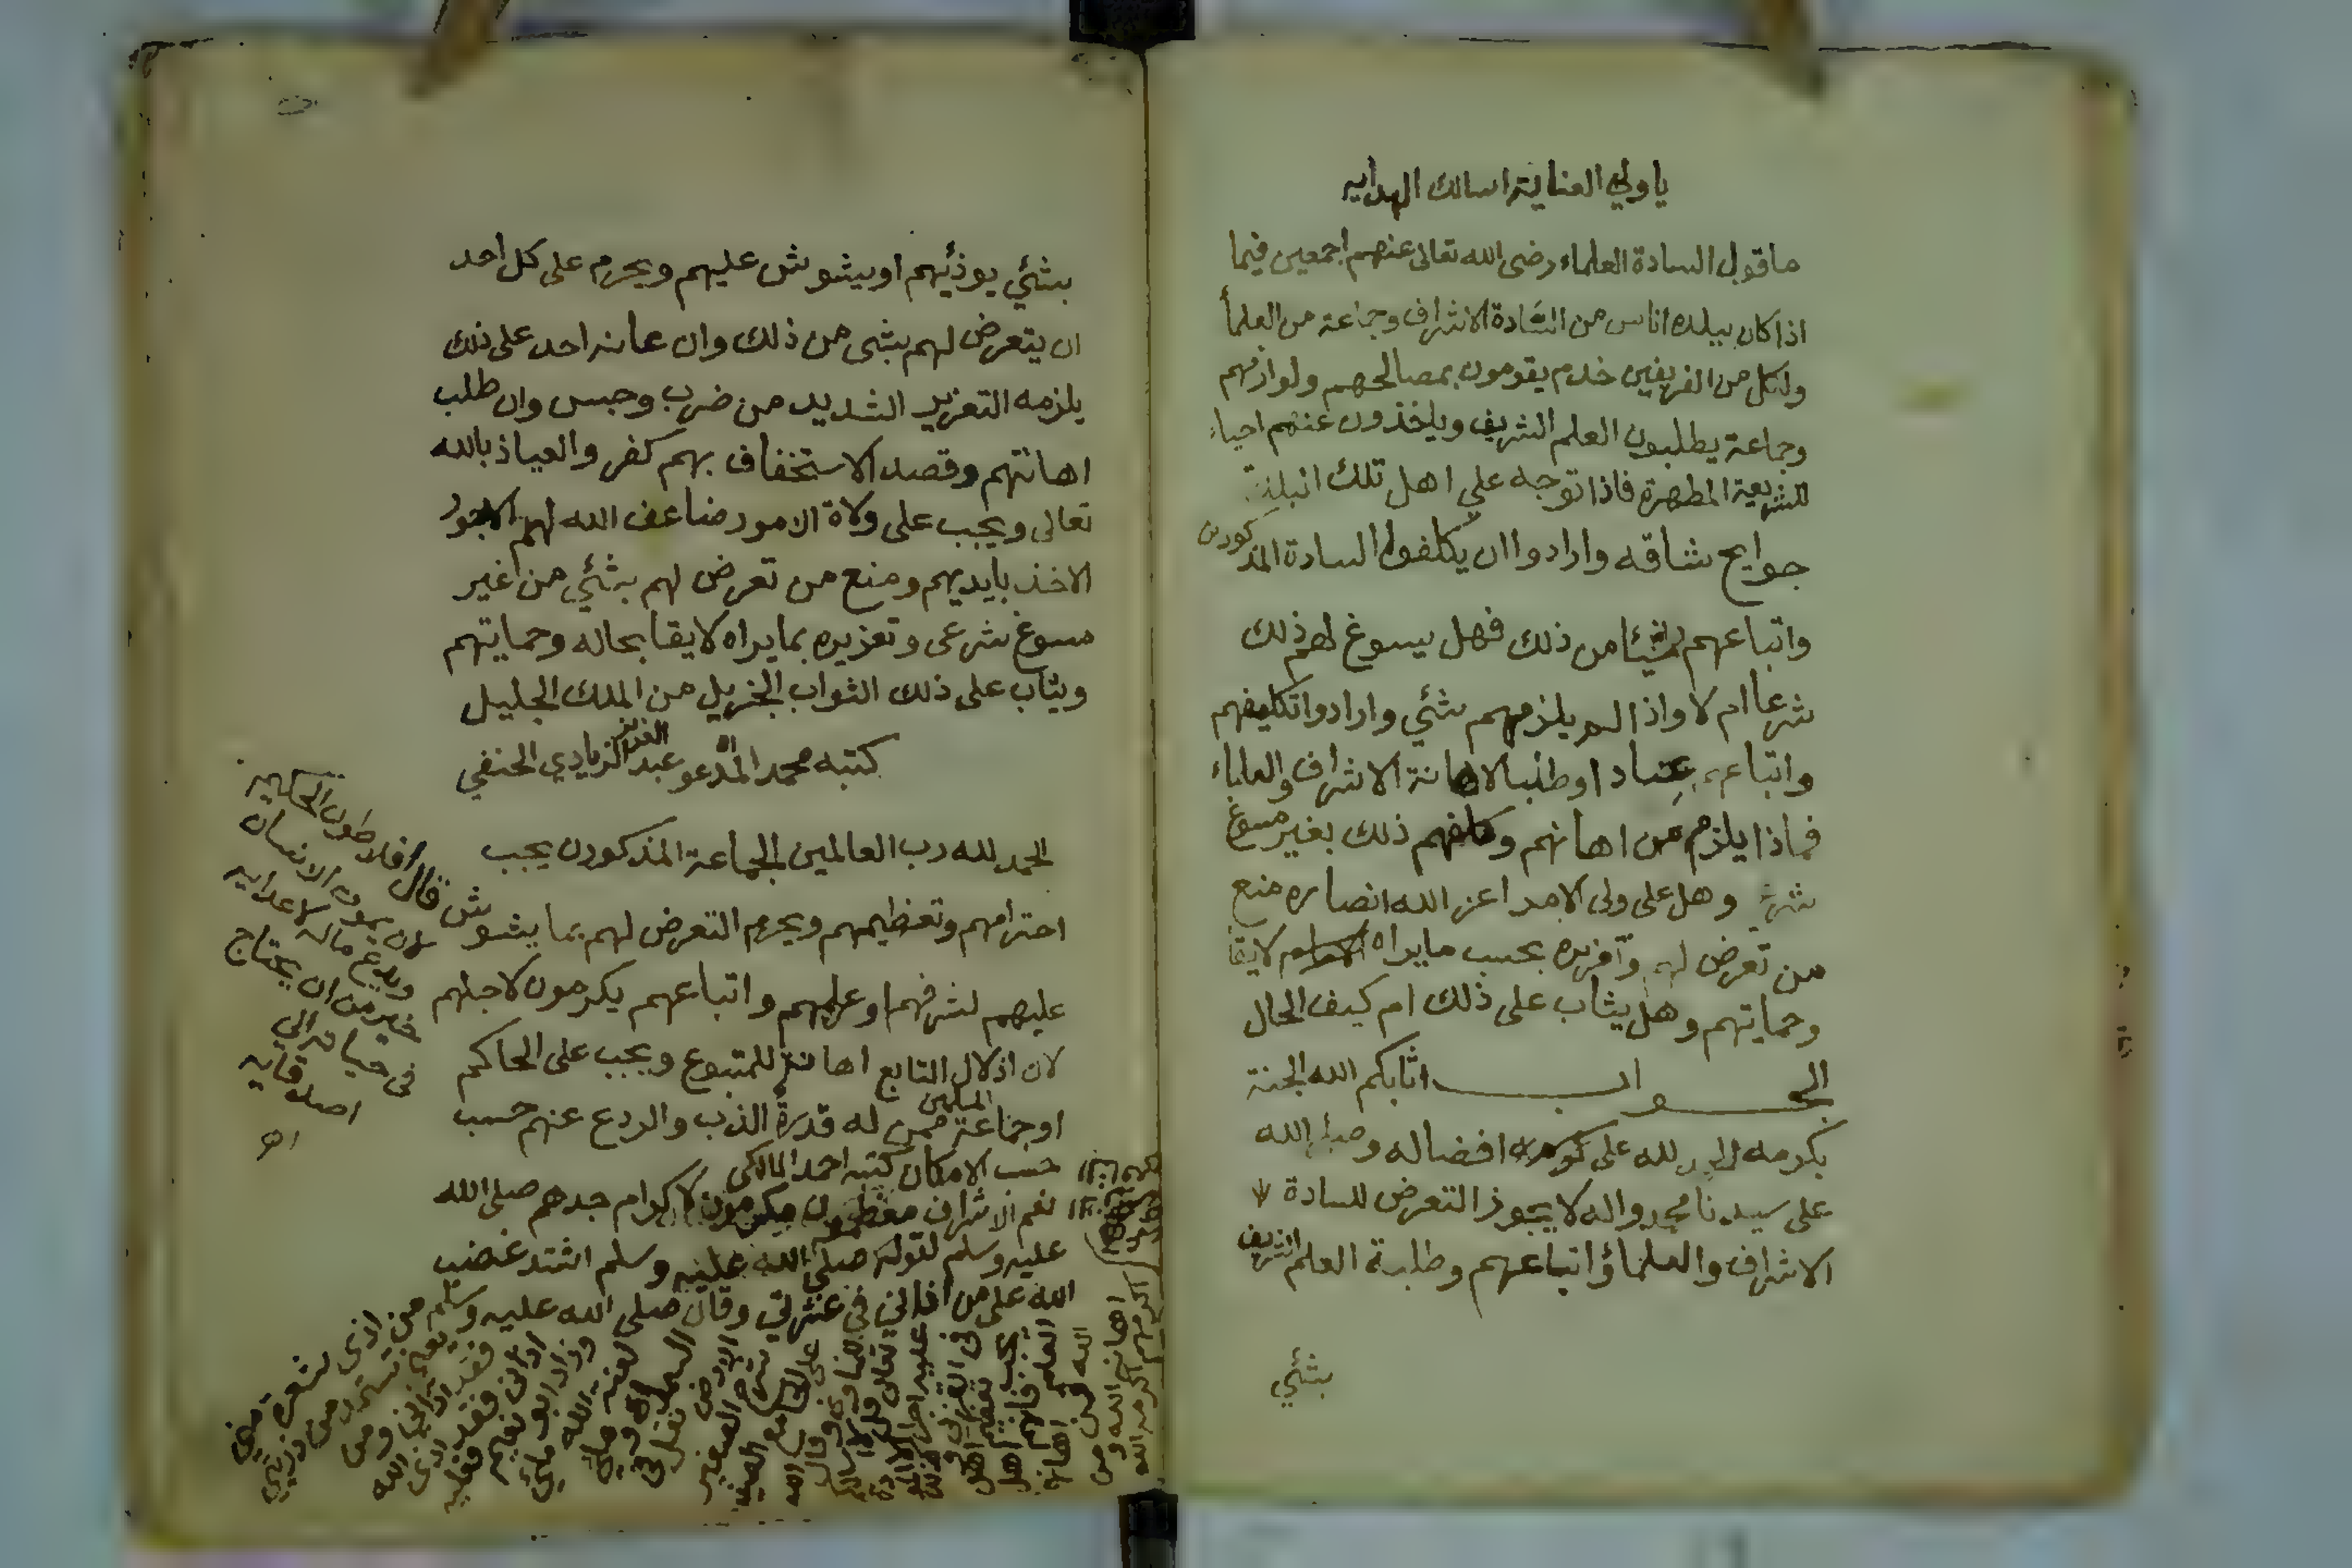 يا ولي العناية اسالك الهدايه
ما قول السادة العلماء رضى الله تعالى عنهم اجمعين فيما
اذا كان ببلده اناس من السادة الاشراف وجماعة من العلمأ
ولكل من الفريقين خدم يقومون بمصالحهم ولوازمهم
وجماعة يطلبون العلم الشريف وياخذون عنهم احياء
للشريعة المطهرة فاذا توجه على اهل تلك البلدة
حوايج شاقه وارادوا ان يكلفوا السادة المذكورين
واتباعهم شيئا من ذلك فهل يسوغ لهم ذلك
شرعا ام لا واذا لم يلزمهم شئي وارادوا تكليفهم
واتباعهم عناد او طلبا لاهانة الاشراف والعلماء
فماذا يلزم من اهانهم وكلفهم ذلك بغير مسوغ
شرعي وهل على ولى الامر اعز الله انصاره منع
من تعرض لهم وتعزيره بحسب ما يراه لايقا
وحمايتهم وهل يثاب على ذلك ام كيف الحال
الجواب اثابكم الله الجنة
بكرمه الحمد لله على افضاله وصلى الله
على سيدنا محمد واله لا يجوز التعرض للسادة
الاشراف والعلماؤ اتباعهم وطلبة العلم الشريف
بشئي
بشئي يوذئيهم او يشوش عليهم ويحرم على كل احد
ان يتعرض لهم بشى من ذلك وان عانه احد على ذلك
يلزمه التعزير الشديد من ضرب وحبس وان طلب
اهانتهم وقصد الاستخفاف بهم كفر والعياذ بالله
تعالى ويجب على ولاة الامور ضاعف الله لهم الاجور
الاخذ بايديهم ومنع من تعرض لهم بشئي من غير
مسوغ شرعى وتعزيره بما يراه لايقا بحاله وحمايتهم
ويثاب على ذلك الثواب الجزيل من الملك الجليل
كتبه محمد المدعو عبد العزيز الزيادي الحنفي
الحمد لله رب العالمين الجماعة المذكورن يجب
احترامهم وتعظيمهم ويحرم التعرض لهم بما يشوش
عليهم لشرفهم او علمهم واتباعهم يكرمون لاجلهم
لان اذلال التابع اهانة للمتبوع ويجب على الحاكم
او جماعة المسلمين ممن له قدرة الذب والردع عنهم حسب
حسب الامكان كتبه احمد المالكى
نعم الاشراف معظمون مكرمون لاكرام جدهم صلى الله
عليه وسلم لقوله صلى الله عليه وسلم اشتد غضب
الله على من اذاني في عترتي وقال صلى الله عليه وسلم من اذى شعرة مني
فقد اذاني ومن
اذانى فقد اذى الله
وزاد ابو نعيم فعليه
لعنة الله
قال افلاطون الحكيم
لان يموت الانسان
ويدع ماله لاعدايه
خير من ان يحتاج
فى حياته الي
اصدقايه
اهـ